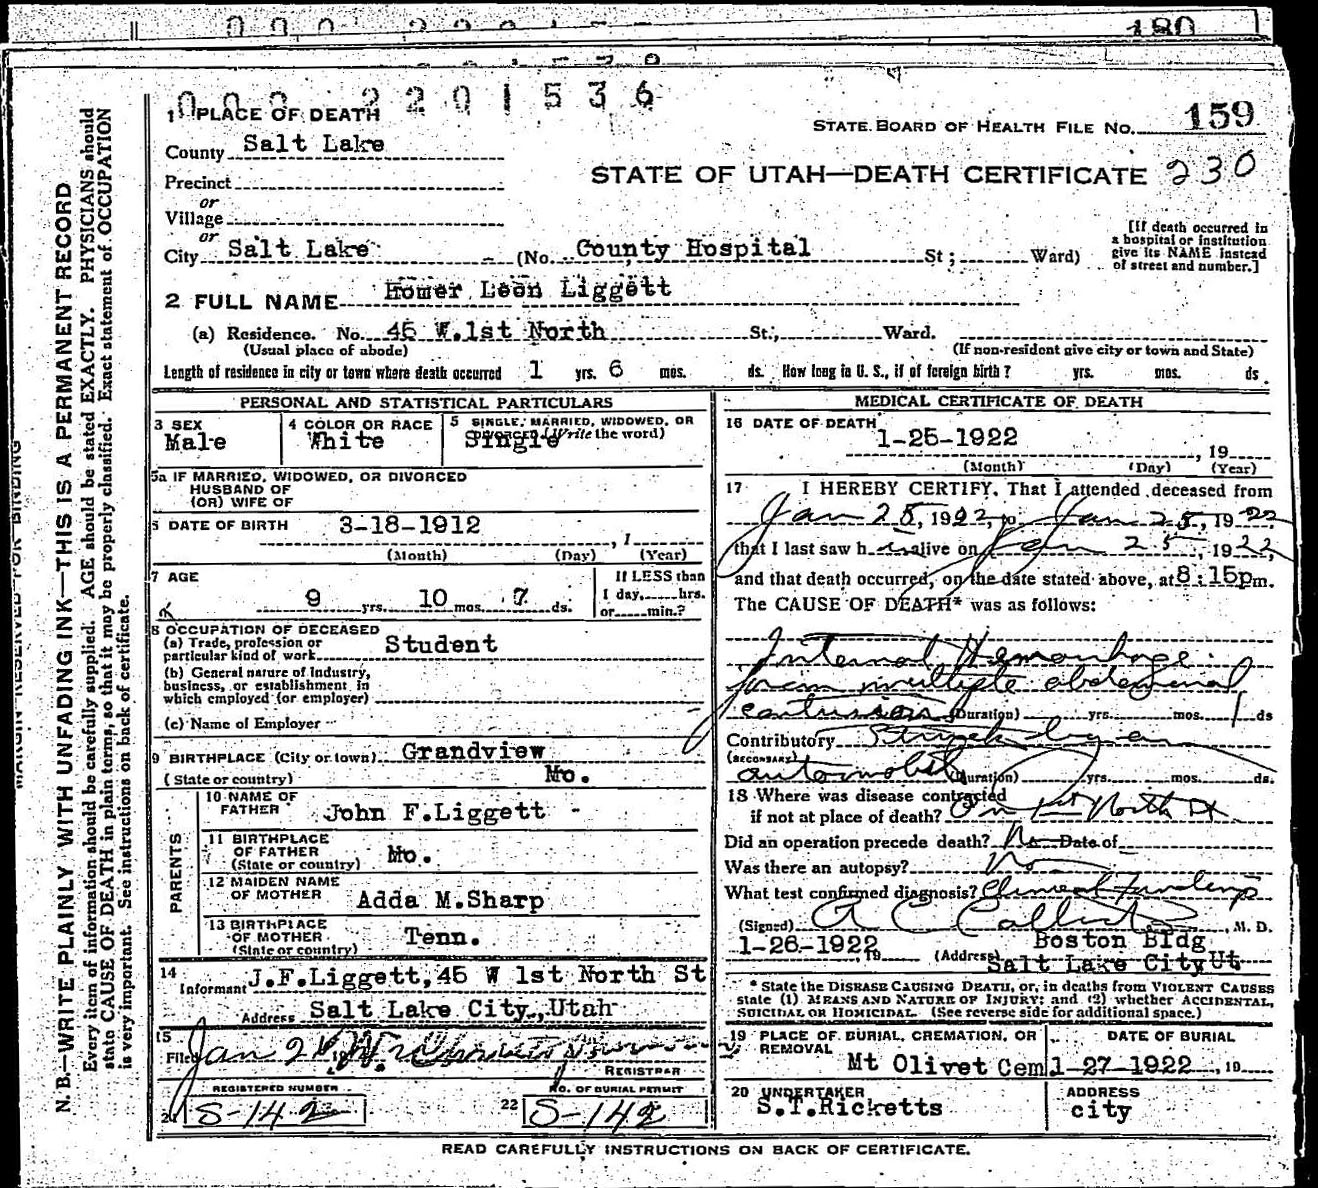 180
000 2201536
1 PLACE OF DEATH
STATE BOARD OF HEALTH FILE NO. 159
County Salt Lake
STATE OF UTAH—DEATH CERTIFICATE 230
Precinct
or
Village
or
City Salt Lake (No. County Hospital St; Ward)
[If death occurred in
a hospital or institution
give its NAME instead
of street and number.]
2 FULL NAME Homer Leon Liggett
(a) Residence. No. 45 W.1st North St., Ward.
(Usual place of abode) (If non-resident give city or town and State)
Length of residence in city or town where death occurred 1 yrs. 6 mos. ds. How long in U. S., if of foreign birth? yrs. mos. ds.
PERSONAL AND STATISTICAL PARTICULARS
3 SEX
Male
4 COLOR OR RACE
White
5 SINGLE, MARRIED, WIDOWED, OR
DIVORCED (Write the word)
Single
5a IF MARRIED, WIDOWED, OR DIVORCED
HUSBAND OF
(OR) WIFE OF
6 DATE OF BIRTH 3-18-1912
, 1
(Month) (Day) (Year)
7 AGE
9 yrs. 10 mos. 7 ds.
If LESS than
1 day, hrs.
or min.?
8 OCCUPATION OF DECEASED
(a) Trade, profession or
particular kind of work Student
(b) General nature of industry,
business, or establishment in
which employed (or employer)
(c) Name of Employer
9 BIRTHPLACE (City or town) Grandview
(State or country) Mo.
PARENTS
10 NAME OF
FATHER John F.Liggett
11 BIRTHPLACE
OF FATHER
(State or country) Mo.
12 MAIDEN NAME
OF MOTHER Adda M.Sharp
13 BIRTHPLACE
OF MOTHER
(State or country) Tenn.
14
Informant J.F.Liggett,45 W 1st North St
Address Salt Lake City.,Utah
15
Filed Jan
REGISTRAR
REGISTERED NUMBER
21 S-142
NO. OF BURIAL PERMIT
22 S-142
MEDICAL CERTIFICATE OF DEATH
16 DATE OF DEATH 1-25-1922
, 19
(Month) (Day) (Year)
17 I HEREBY CERTIFY, That I attended deceased from
Jan 25, 1922, to Jan 25, 1922,
that I last saw h im alive on Jan 25, 1922,
and that death occurred, on the date stated above, at 8:15p m.
The CAUSE OF DEATH* was as follows:
Internal Hemorrhage
from multiple abdominal
contusion (Duration) yrs. mos. 1 ds
Contributory Struck by an
(SECONDARY)
automobile (Duration) yrs. mos. ds.
18 Where was disease contracted
if not at place of death? On 1st North St
Did an operation precede death? No Date of
Was there an autopsy? No
What test confirmed diagnosis? Clinical Findings
(Signed) A C Callister, M. D.
1-26-1922, 19 (Address) Boston Bldg
Salt Lake City Ut
* State the DISEASE CAUSING DEATH, or, in deaths from VIOLENT CAUSES
state (1) MEANS AND NATURE OF INJURY; and (2) whether ACCIDENTAL,
SUICIDAL OR HOMICIDAL. (See reverse side for additional space.)
19 PLACE OF BURIAL, CREMATION, OR
REMOVAL
Mt Olivet Cem
DATE OF BURIAL
1-27-1922, 19
20 UNDERTAKER
S.T.Ricketts
ADDRESS
city
READ CAREFULLY INSTRUCTIONS ON BACK OF CERTIFICATE.
MARGIN RESERVED FOR BINDING
N. B.—WRITE PLAINLY WITH UNFADING INK—THIS IS A PERMANENT RECORD
Every item of information should be carefully supplied. AGE should be stated EXACTLY. PHYSICIANS should
state CAUSE OF DEATH in plain terms, so that it may be properly classified. Exact statement of OCCUPATION
is very important. See instructions on back of certificate.